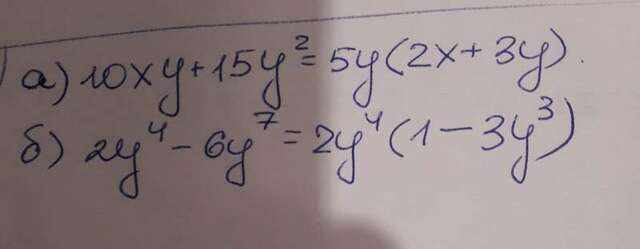 а) 10xy+15y²=5y(2x+3y).
б) 2y⁴-6y⁷=2y⁴(1-3y³)